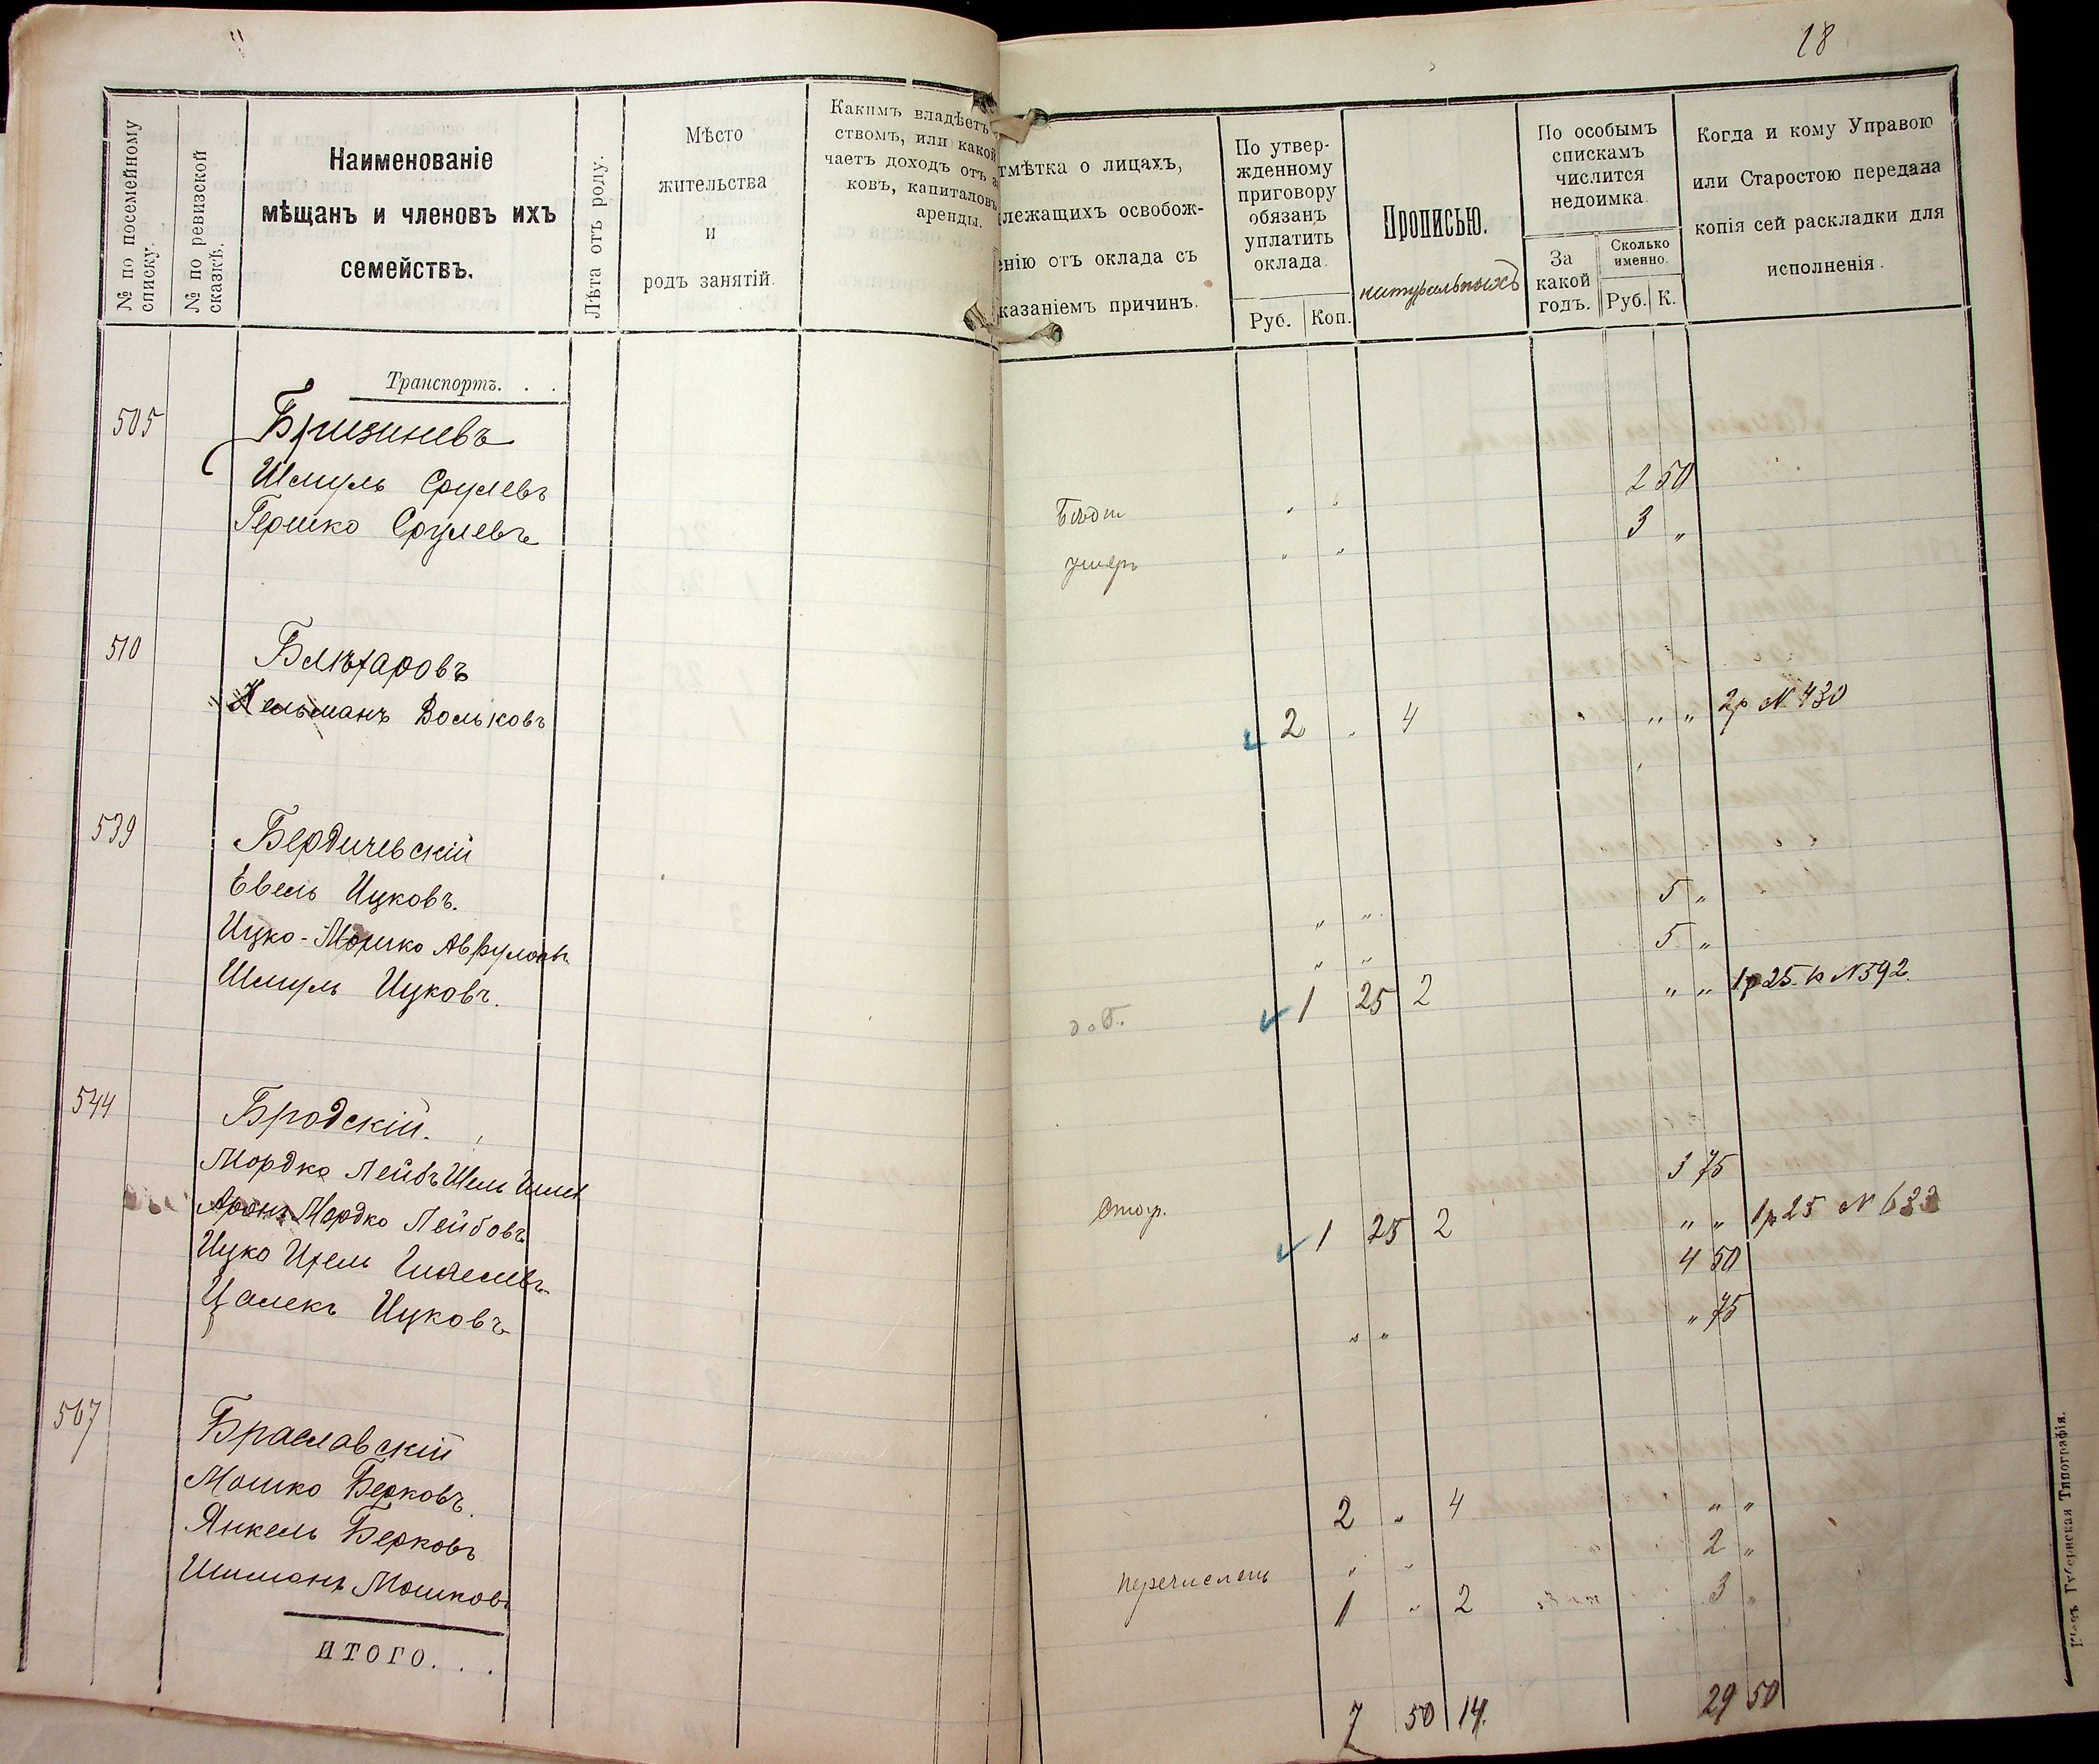 18
№ по посемейному списку.
№ по ревизской сказкѣ.
Наименованіе
мѣщанъ и членовъ ихъ
семействъ.
Лѣта отъ роду.
Мѣсто
жительства
и
родъ занятій.
Какимъ владѣетъ
ствомъ, или какой
чаетъ доходъ отъ
ковъ, капиталовъ
аренды.
тмѣтка о лицахъ,
лежащихъ освобож-
енію отъ оклада съ
казаніемъ причинъ.
По утвер-
жденному
приговору
обязанъ
уплатить
оклада.
Руб. Коп.
Прописью.
натуральныхъ
По особымъ
спискамъ
числится
недоимка.
За
какой
годъ.
Сколько
именно.
Руб. К.
Когда и кому Управою
или Старостою передана
копія сей раскладки для
исполненія.
Транспортъ. . .
505
Шмуль Срулевъ „ „ 2 50
Гершко Срулевъ умеръ „ „ 3 „
510
Кельманъ Вольковъ 2 „ 4 „ „ 2р № 430
539 Бердичевскій
Евель Ицковъ. „ „ 5 „
Ицко-Мошко „ „ 5 „
Шмуль Ицковъ. доб. 1 25 2 „ „ 1р 25 к № 592.
544 Бродскій.
Мордко Лейбъ 3 75
Аронъ Мордко Лейбовъ 1 25 2 „ „ 1р 25 №
Ицко 4 50
Цалекъ Ицковъ „ „ „ 75
567 Браславскій
Мошко Берковъ. 2 „ 4 „ „
Янкель Берковъ перечисленъ „ „ 2 „
Шиманъ Мошковъ 1 „ 2 3 „
ИТОГО. . .
7 50 14. 29 50
Кіевъ. Губернская Типографія.